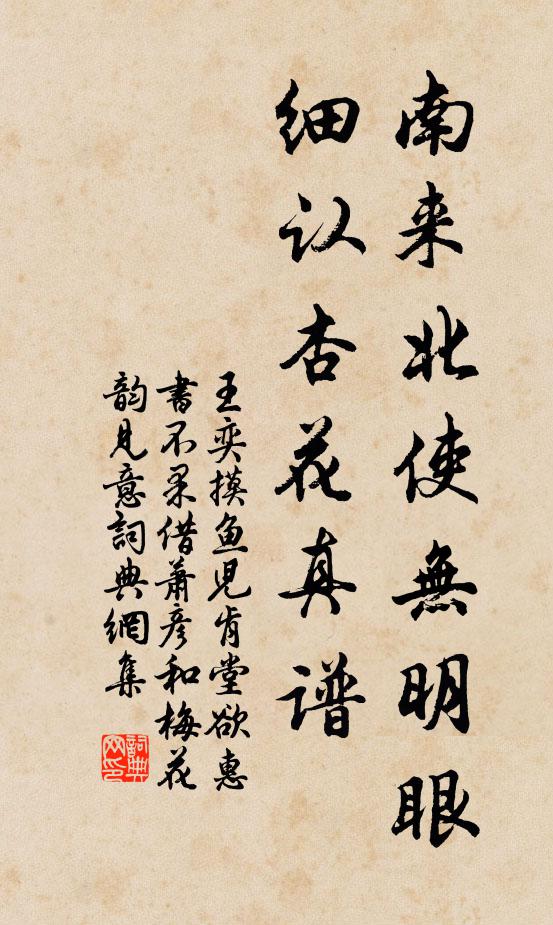 南来北使無明眼
细认杏花真谱
王奕摸鱼児肯堂欲惠
書不果借蕭彦和梅花
韵見意詞典網集
詞典网印